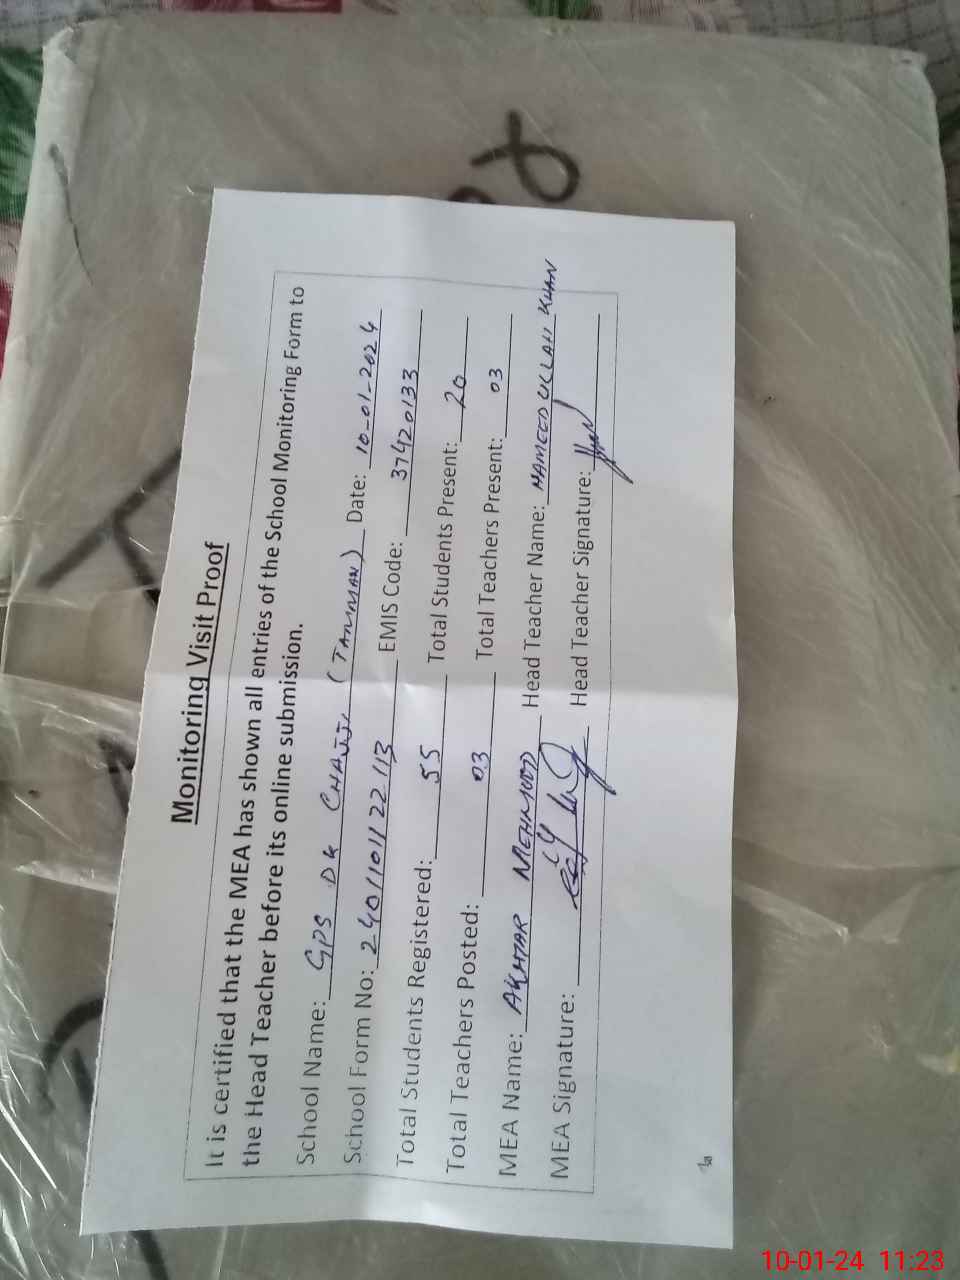 Monitoring Visit Proof
It is certified that the MEA has shown all entries of the School Monitoring Form to
the Head Teacher before its online submission.
School Name: GPS DK CHAJJI (TAMMAN) Date: 10-01-2024
School Form No: 240110112 2113 EMIS Code: 37420133
Total Students Registered: 55 Total Students Present: 20
Total Teachers Posted: 03 Total Teachers Present: 03
MEA Name: AKHTAR MEHMOOD Head Teacher Name: HAMEED ULLAH KHAN
MEA Signature: Head Teacher Signature:
10-01-24 11:23